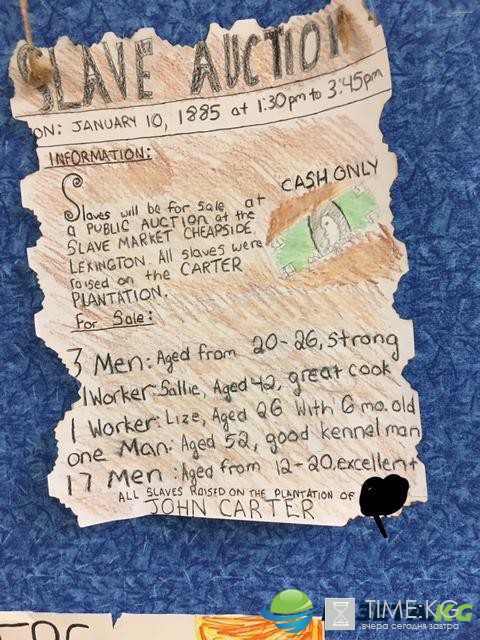 SLAVE AUCTION
ON: JANUARY 10, 1885 at 1:30pm to 3:45pm
INFORMATION:
CASH ONLY
Slaves will be for sale at
a PUBLIC AUCTION at the
SLAVE MARKET CHEAPSIDE,
LEXINGTON. All slaves were
raised on the CARTER
PLANTATION.
For Sale:
3 Men: Aged from 20-26, strong
1 Worker: Sallie, Aged 42, great cook
1 Worker: Lize, Aged 26 With 6 mo. old
one Man: Aged 52, good kennel man
17 Men: Aged from 12-20, excellent
ALL SLAVES RAISED ON THE PLANTATION OF
JOHN CARTER
TIME.KG
вчера сегодня завтра